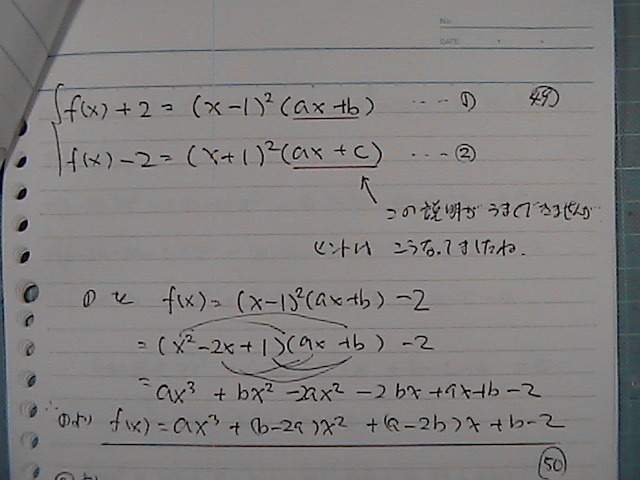 No.
DATE
f(x) + 2 = (x-1)²(ax+b) ---- ① ㊾
f(x) - 2 = (x+1)²(ax + c) ---- ②
この説明がうまくできませんが
ヒントは こうなってましたね.
① を f(x) = (x-1)²(ax+b) - 2
= (x² - 2x + 1)(ax + b) - 2
= ax³ + bx² - 2ax² - 2bx + ax + b - 2
∴ ①より f(x) = ax³ + (b-2a)x² + (a-2b)x + b - 2
㊿